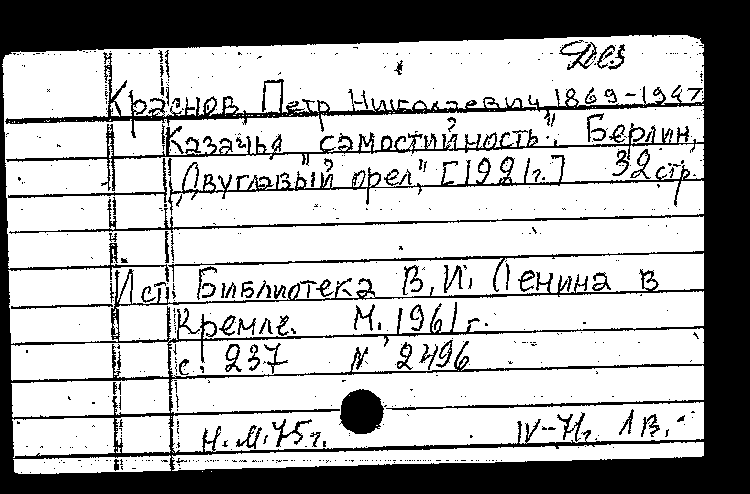 Дез
Краснов, Петр Николаевич, 1869-1947
Казачья "самостийность". Берлин,
"Двуглавый орел", [1921г.] 32 стр.
Ист. Библиотека В. И. Ленина в
Кремле. М. 1961 г.
с. 237 N 2496
Н.М. 75 г. IV-71г. 1 В.